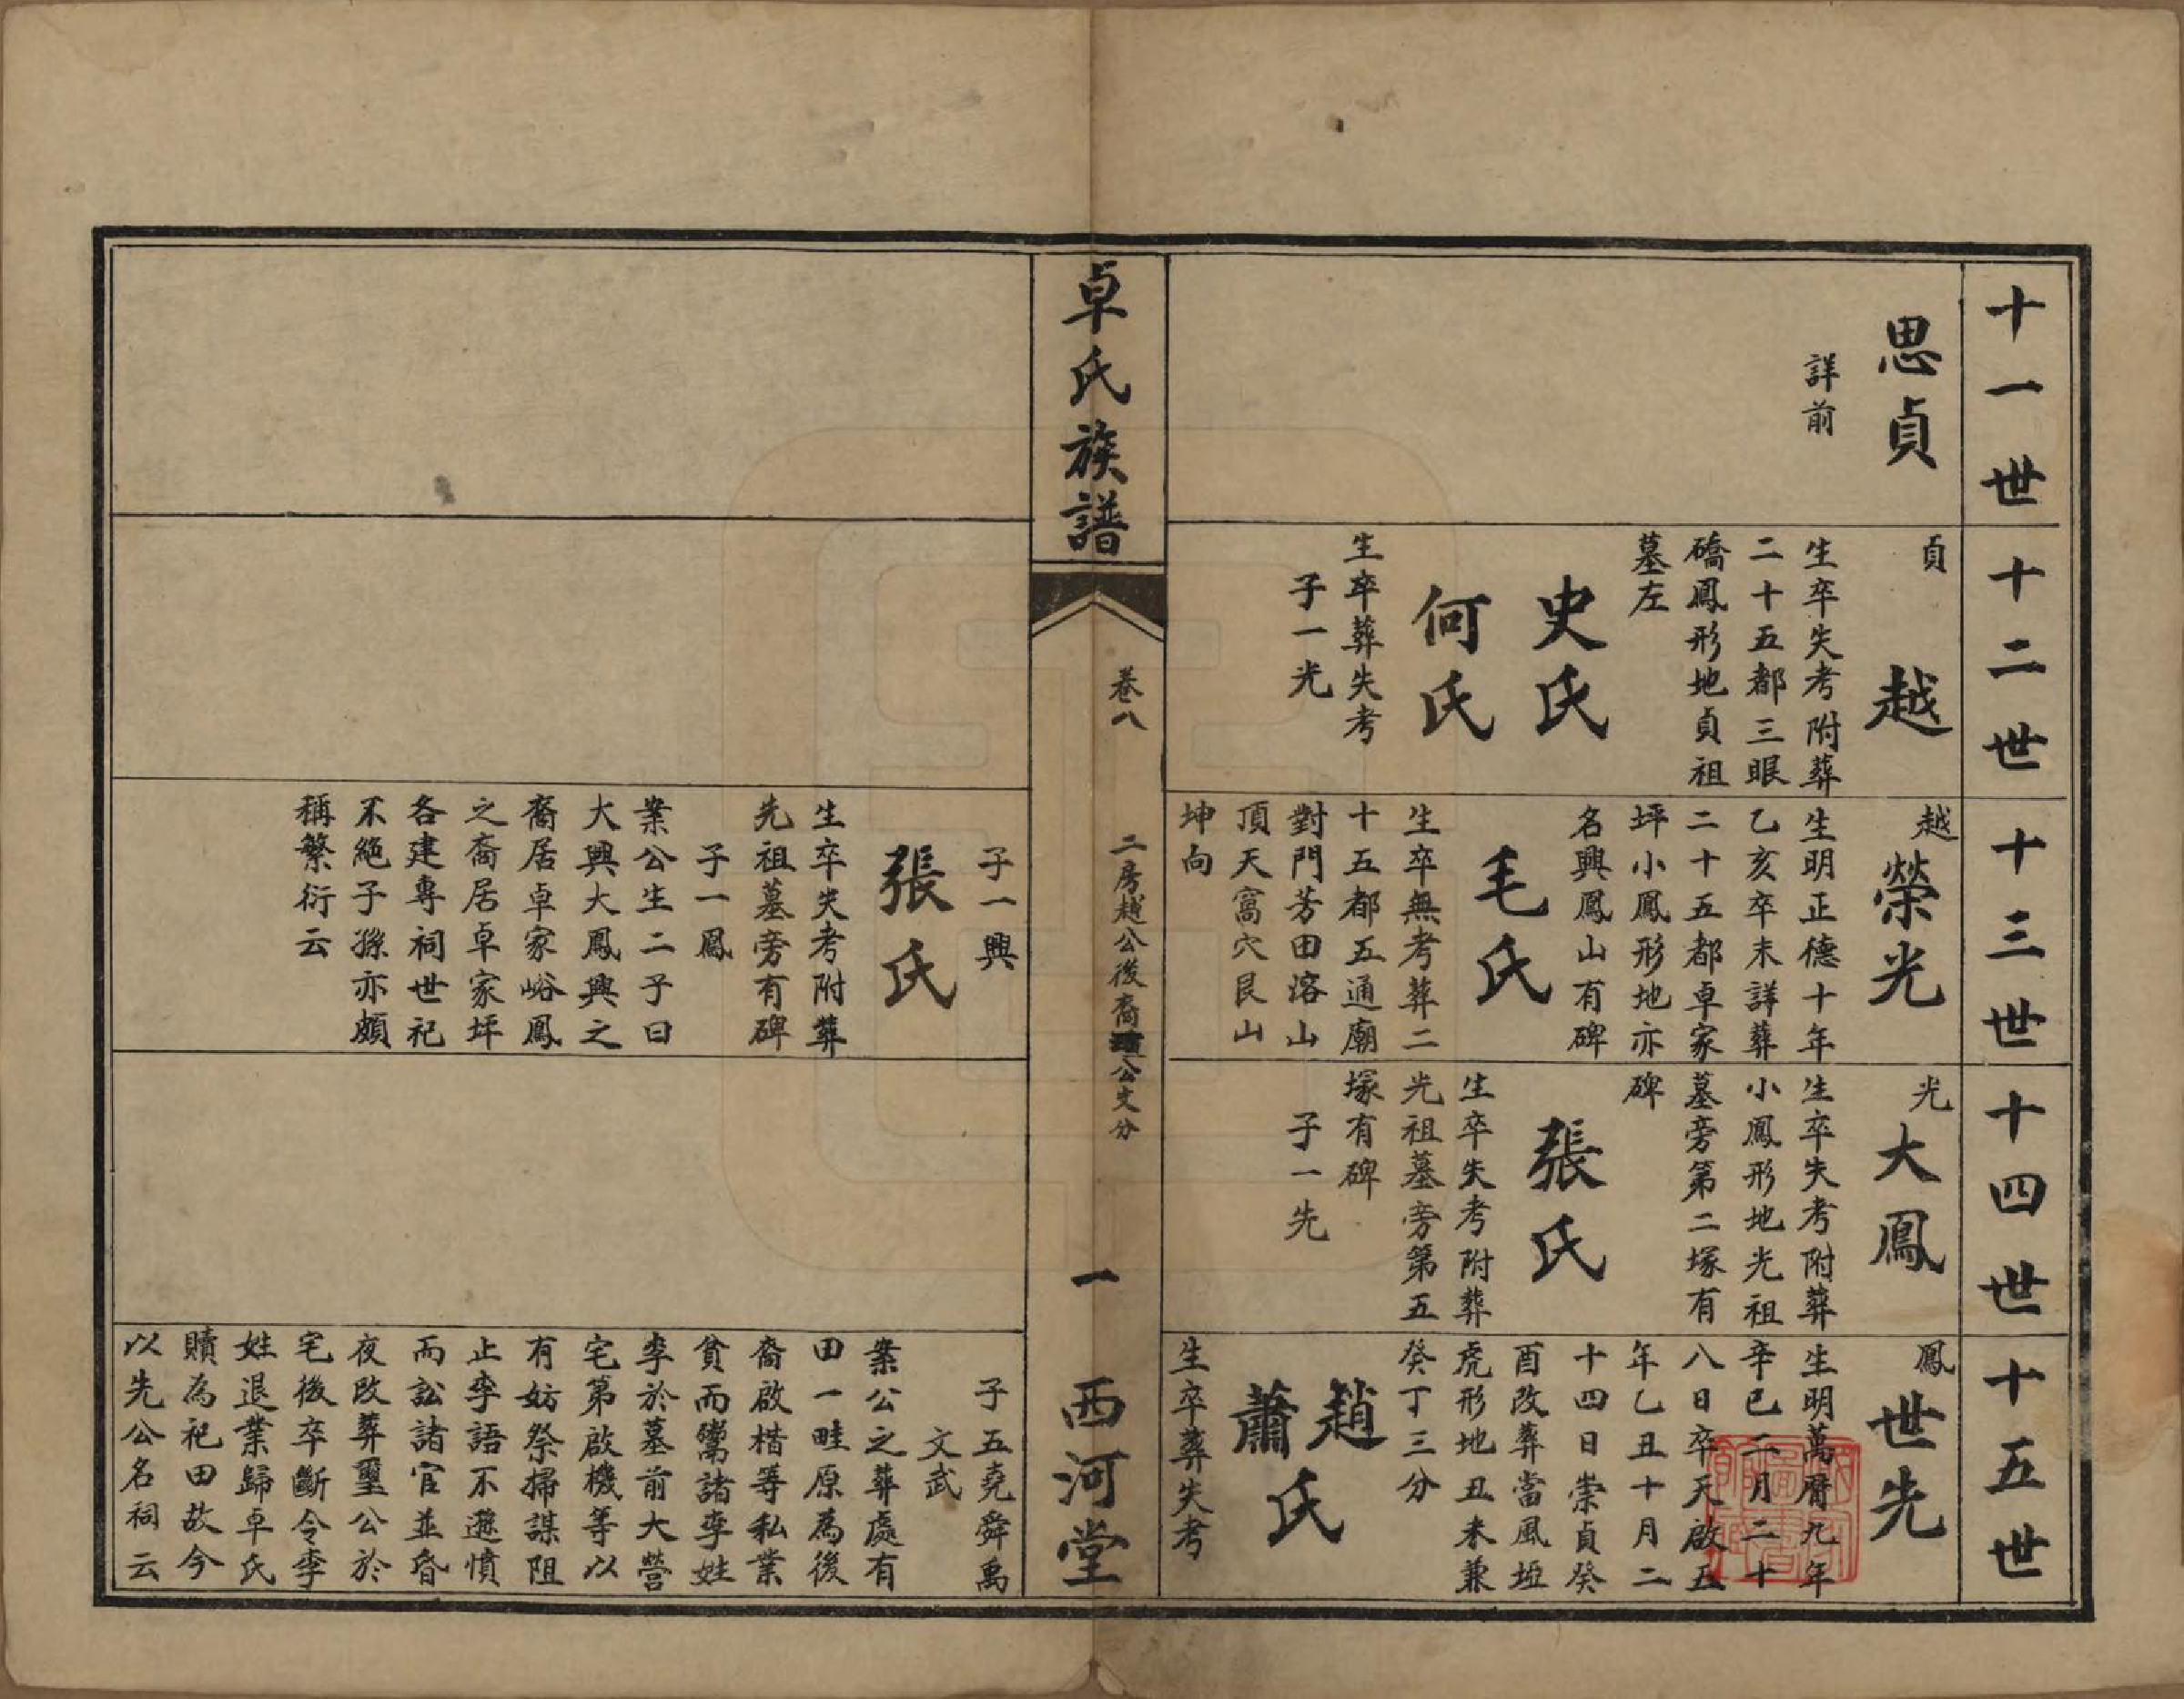 十一世
思貞
詳前
十二世
貞
越
生卒失考附葬
二十五都三眼
礄鳳形地貞祖
墓左
史氏
何氏
生卒葬失考
子一光
十三世
越
榮光
生明正德十年
乙亥卒未詳葬
二十五都卓家
坪小鳳形地亦
名興鳳山有碑
毛氏
生卒無考葬二
十五都五通廟
對門芳田溶山
頂天窩穴艮山
坤向
十四世
光
大鳳
生卒失考附葬
小鳳形地光祖
墓旁第二塚有
碑
張氏
生卒失考附葬
光祖墓旁第五
塚有碑
子一先
十五世
鳳
世先
生明萬曆九年
辛巳二月二十
八日卒天啟五
年乙丑十月二
十四日崇貞癸
酉改葬當風埡
虎形地丑未兼
癸丁三分
趙
蕭氏
生卒葬失考
卓氏族譜
卷八
二房越公後裔公文分
一
西河堂
子一興
張氏
生卒失考附葬
先祖墓旁有碑
子一鳳
案公生二子曰
大興大鳳興之
裔居卓家峪鳳
之裔居卓家坪
各建專祠世祀
不絕子孫亦頗
稱繁衍云
子五堯舜禹
文武
案公之葬處有
田一畦原為後
裔啟楷等私業
貧而鬻諸李姓
李於墓前大營
宅第啟機等以
有妨祭掃謀阻
止李語不遜憤
而訟諸官並昏
夜改葬璽公於
宅後卒斷令李
姓退業歸卓氏
贖為祀田故今
以先公名祠云